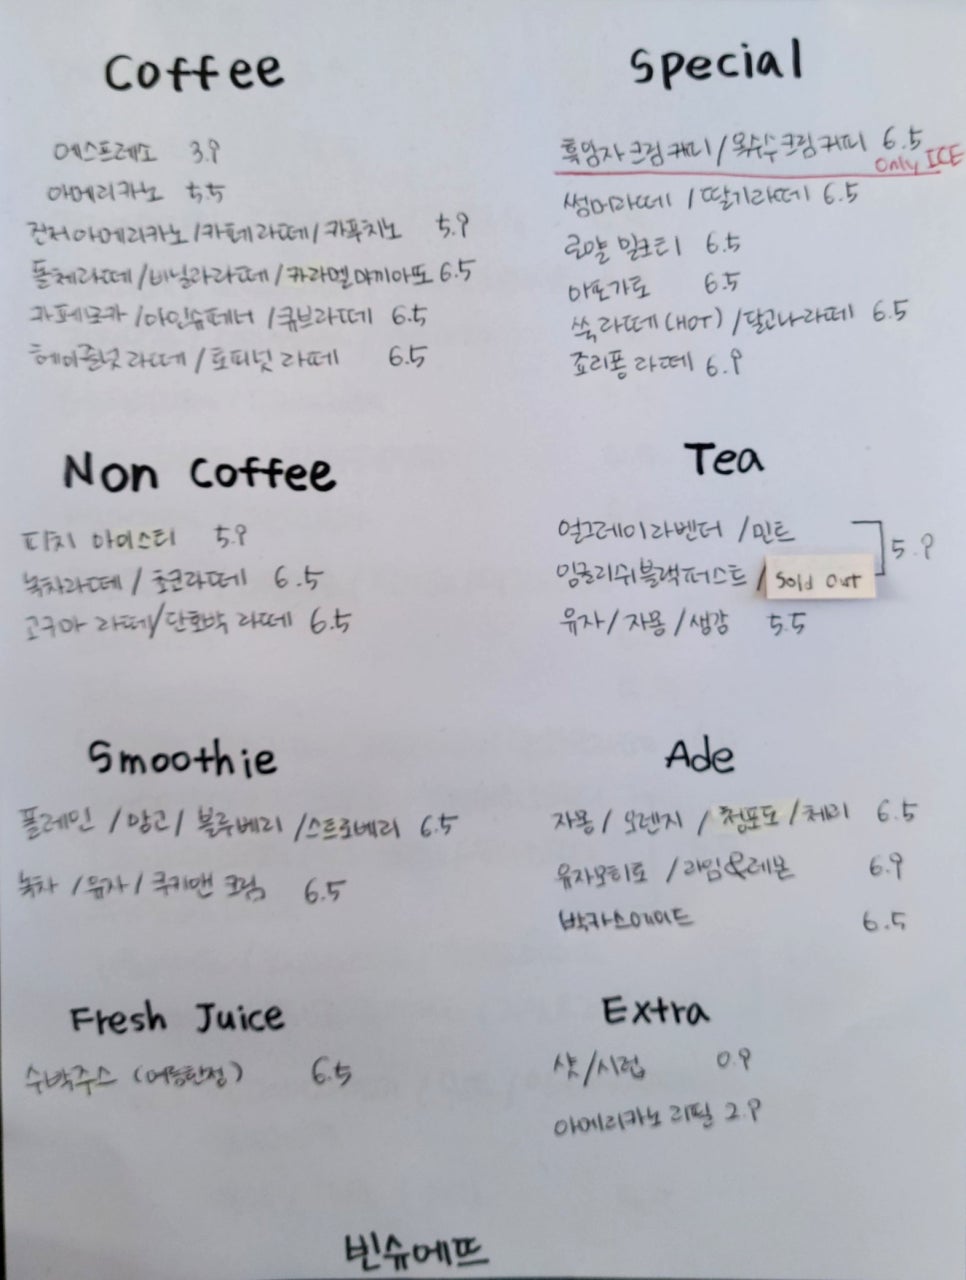 Coffee
에스프레소 3.9
아메리카노 5.5
전저아메리카노/카페라떼/카푸치노 5.9
돌체라떼/바닐라라떼/카라멜마끼아또 6.5
카페모카/아인슈페너/큐브라떼 6.5
헤이즐넛라떼/토피넛라떼 6.5
Special
흑임자크림커피/옥수수크림커피 6.5
Only ICE
썸머라떼/딸기라떼 6.5
로얄밀크티 6.5
아포가토 6.5
쑥라떼(HOT)/달고나라떼 6.5
죠리퐁라떼 6.9
Non Coffee
피치 아이스티 5.9
녹차라떼/초코라떼 6.5
고구마 라떼/단호박 라떼 6.5
Tea
얼그레이라벤더/민트
잉글리쉬블랙퍼스트/Sold Out
5.9
유자/자몽/생강 5.5
Smoothie
플레인/망고/블루베리/스트로베리 6.5
녹차/유자/쿠키앤크림 6.5
Ade
자몽/오렌지/청포도/체리 6.5
유자모히또/라임&레몬 6.9
박카스에이드 6.5
Fresh Juice
수박주스 (여름한정) 6.5
Extra
샷/시럽 0.9
아메리카노 리필 2.9
빈슈에뜨